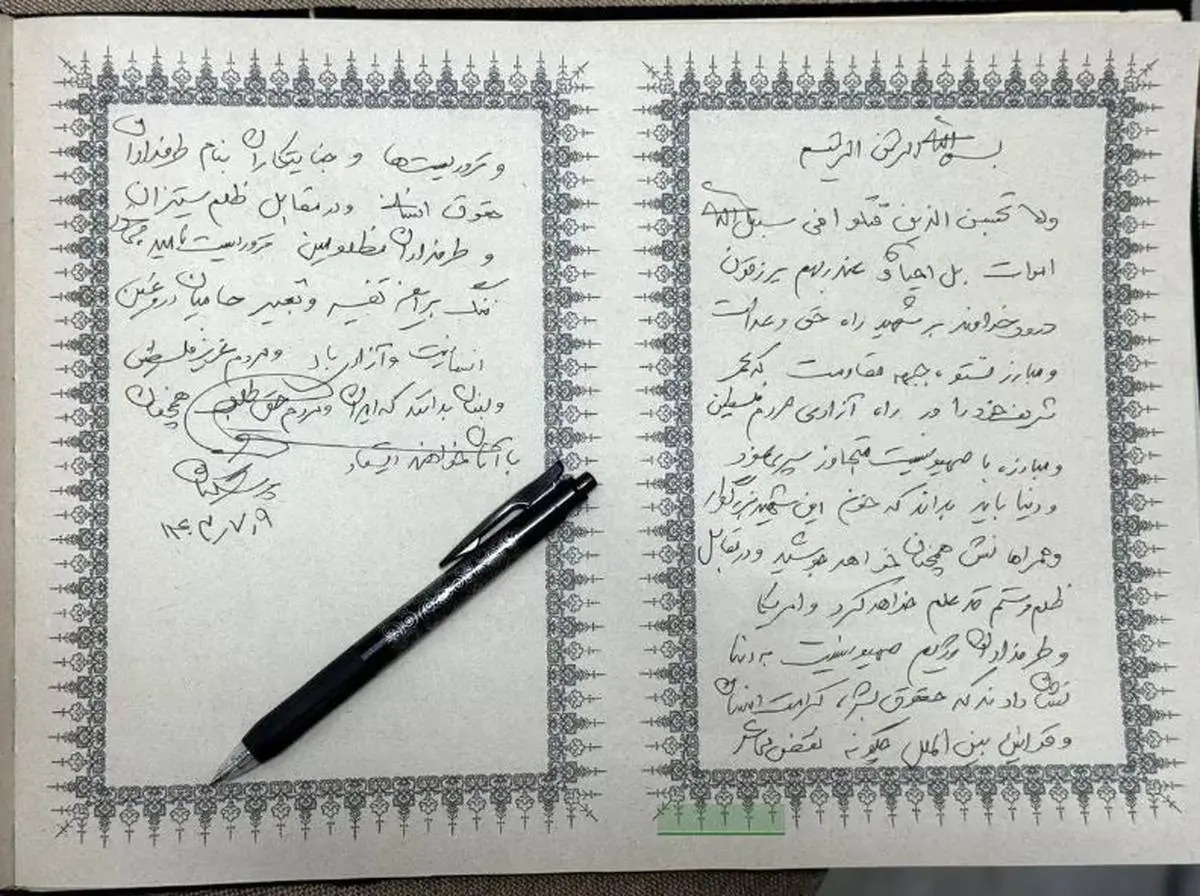 بسم الله الرحمن الرحیم
ولا تحسبن الذین قتلوا فی سبیل الله
اموات بل احیاء عند ربهم یرزقون
درود خداوند بر شهید راه حق و عدالت
و مبارز نستوه جبهه مقاومت که عمر
شریف خود را در راه آزادی مردم فلسطین
و مبارزه با صهیونیست متجاوز سپری نمود
و دنیا باید بداند که خون این شهید بزرگوار
و همراهانش همچنان خواهد جوشید و در مقابل
ظلم و ستم قد علم خواهد کرد و امریکا
و طرفداران رژیم صهیونیست به دنیا
نشان دادند که حقوق بشر، کرامت انسان
و قوانین بین الملل چگونه نقض می‌شود
و تروریست‌ها و جنایتکاران بنام طرفداران
حقوق انسان و در مقابل ظلم ستیزان
و طرفداران مظلومین تروریست نامیده
ننگ بر این تفسیر و تعبیر حامیان دروغین
انسانیت و آزادی باد و مردم عزیز فلسطین
و لبنان بدانند که ایران و مردم حق طلب همچنان
با آنان خواهند ایستاد
پزشکیان
۱۴۰۳/۷/۹